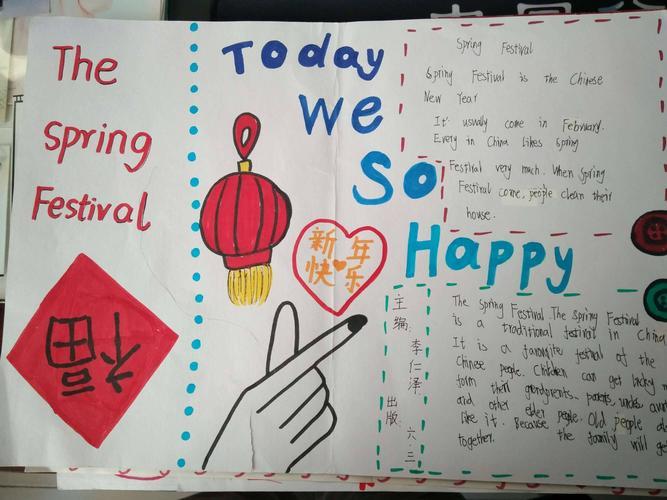 The
Spring
Festival
福
Today
We
So
Happy
新年
快乐
Spring Festival
Spring Festival is the Chinese
New Year
It usually come in February.
Every in China likes spring
Festival very much. When spring
Festival come, people clean their
house.
主编：李仁泽
出版 六.三
The spring Festival The spring Festival
is a traditional festival in China
It is a favourite festival of the
Chinese people. Children can get lucky
form their grandprents. parents, uncles aunt
and other elder people. Old people al
like it. Because the family will get
together.